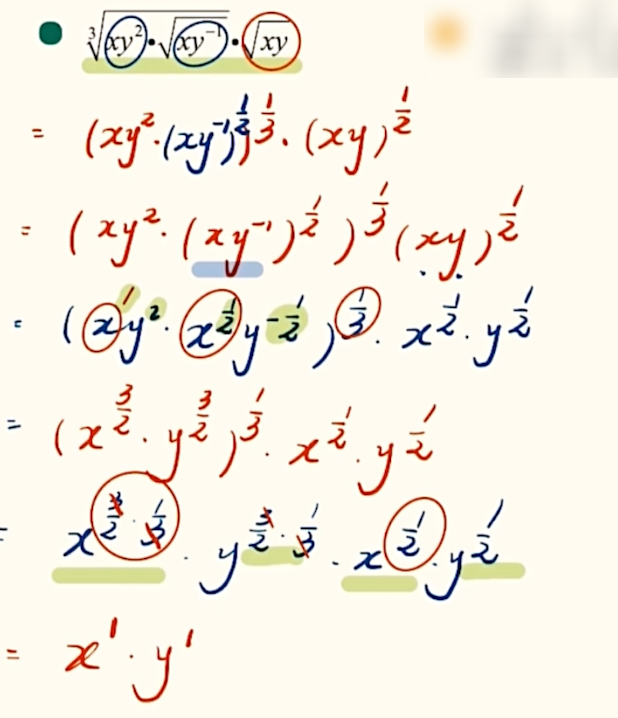 ∛(xy²·√(xy⁻¹))·√(xy)
= (xy²·(xy⁻¹)^(1/2))^(1/3)·(xy)^(1/2)
= (xy²·(xy⁻¹)^(1/2))^(1/3)(xy)^(1/2)
= (x¹y²·x^(1/2)y^(-1/2))^(1/3)·x^(1/2)·y^(1/2)
= (x^(3/2)·y^(3/2))^(1/3)·x^(1/2)·y^(1/2)
= x^(3/2·1/3)·y^(3/2·1/3)·x^(1/2)·y^(1/2)
= x¹·y¹